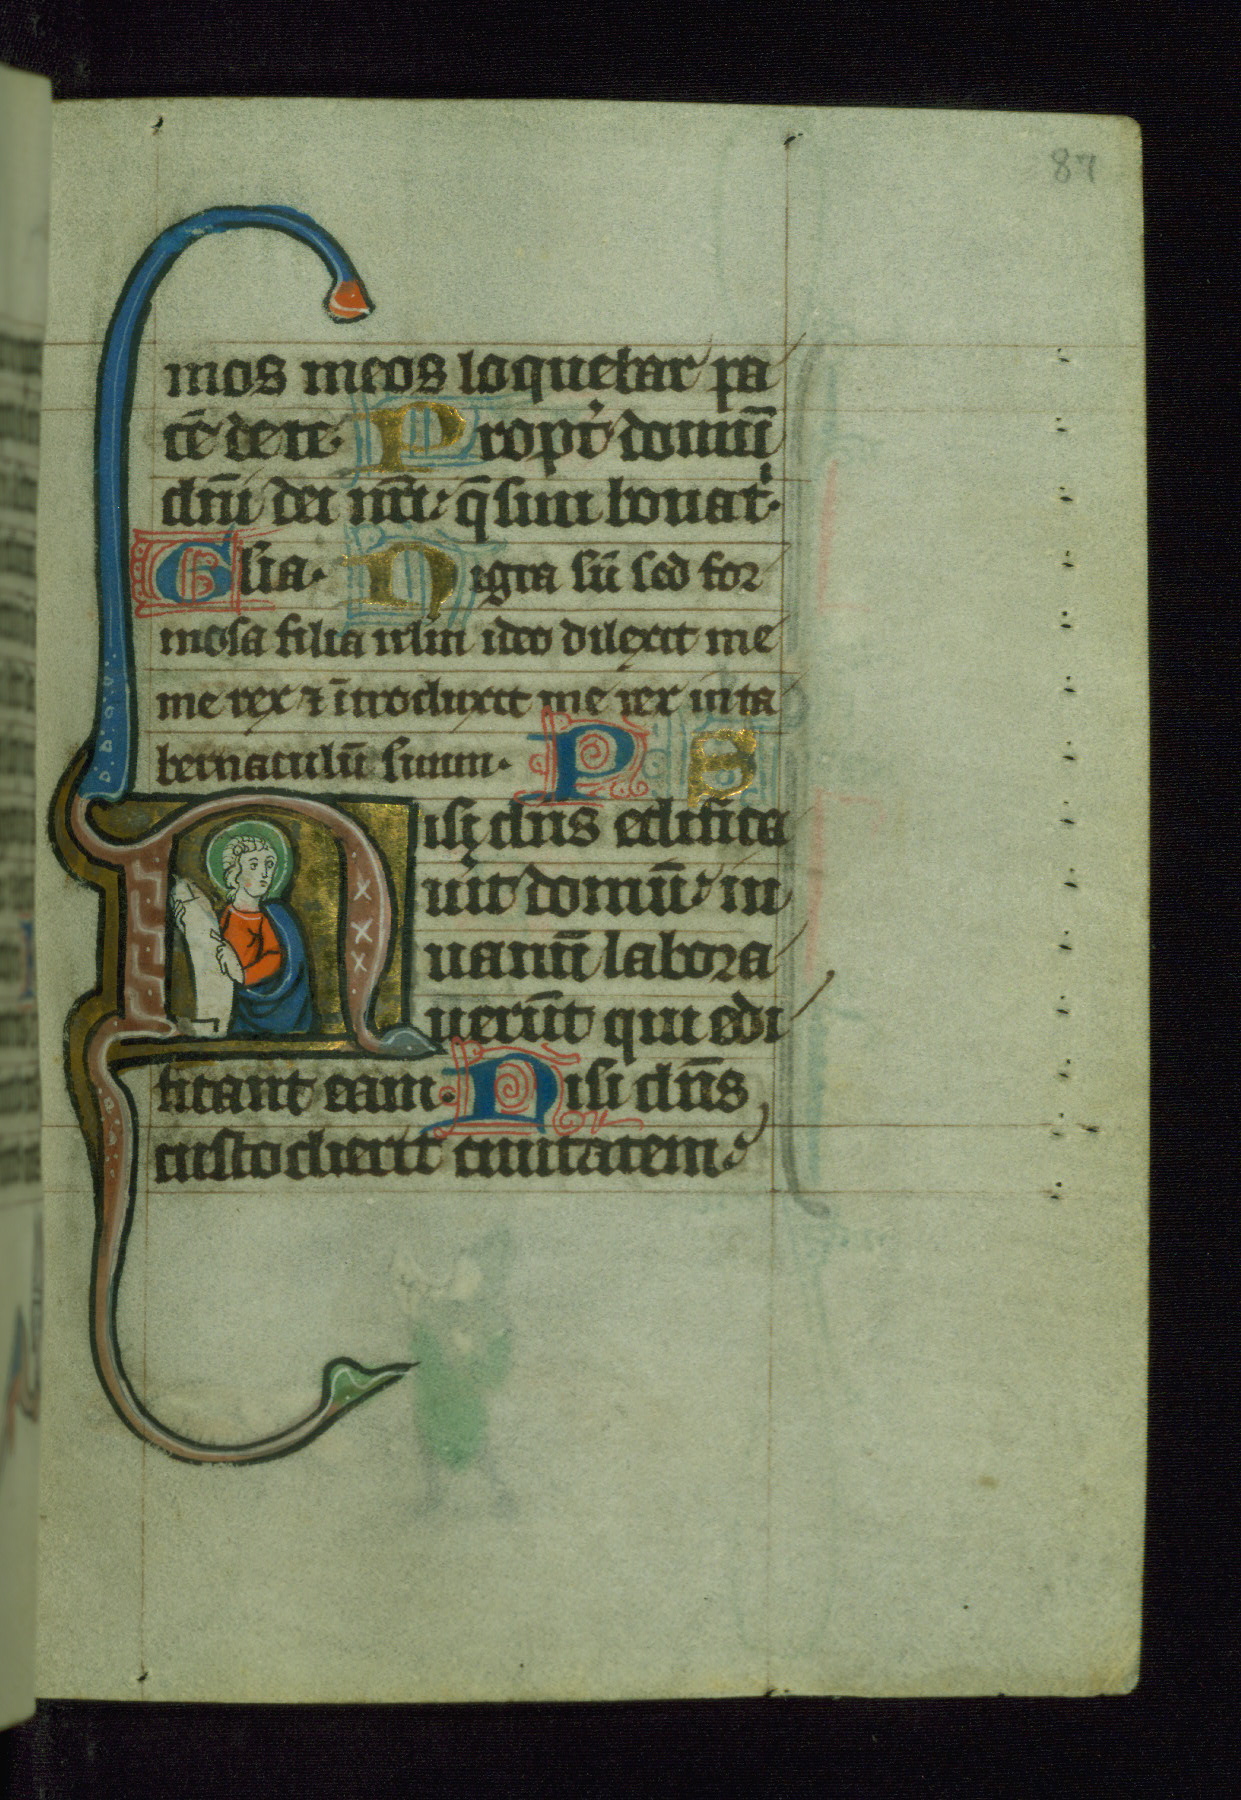 87
mos meos loquebar pa
cē de te. Propt̉ domum̄
dn̄i dei nr̄i: q̄siui bona t̉.
Glia. Nigra sū sed for
mosa filia irlm ideo dilexit me
me rex ⁊ ītroduxit me rex in ta
bernaculū suum. PS
isi dn̄s edifica
uit domū: in
uanū labora
uerūt qui edi
ficant eam. Nisi dn̄s
custodierit ciuitatem: